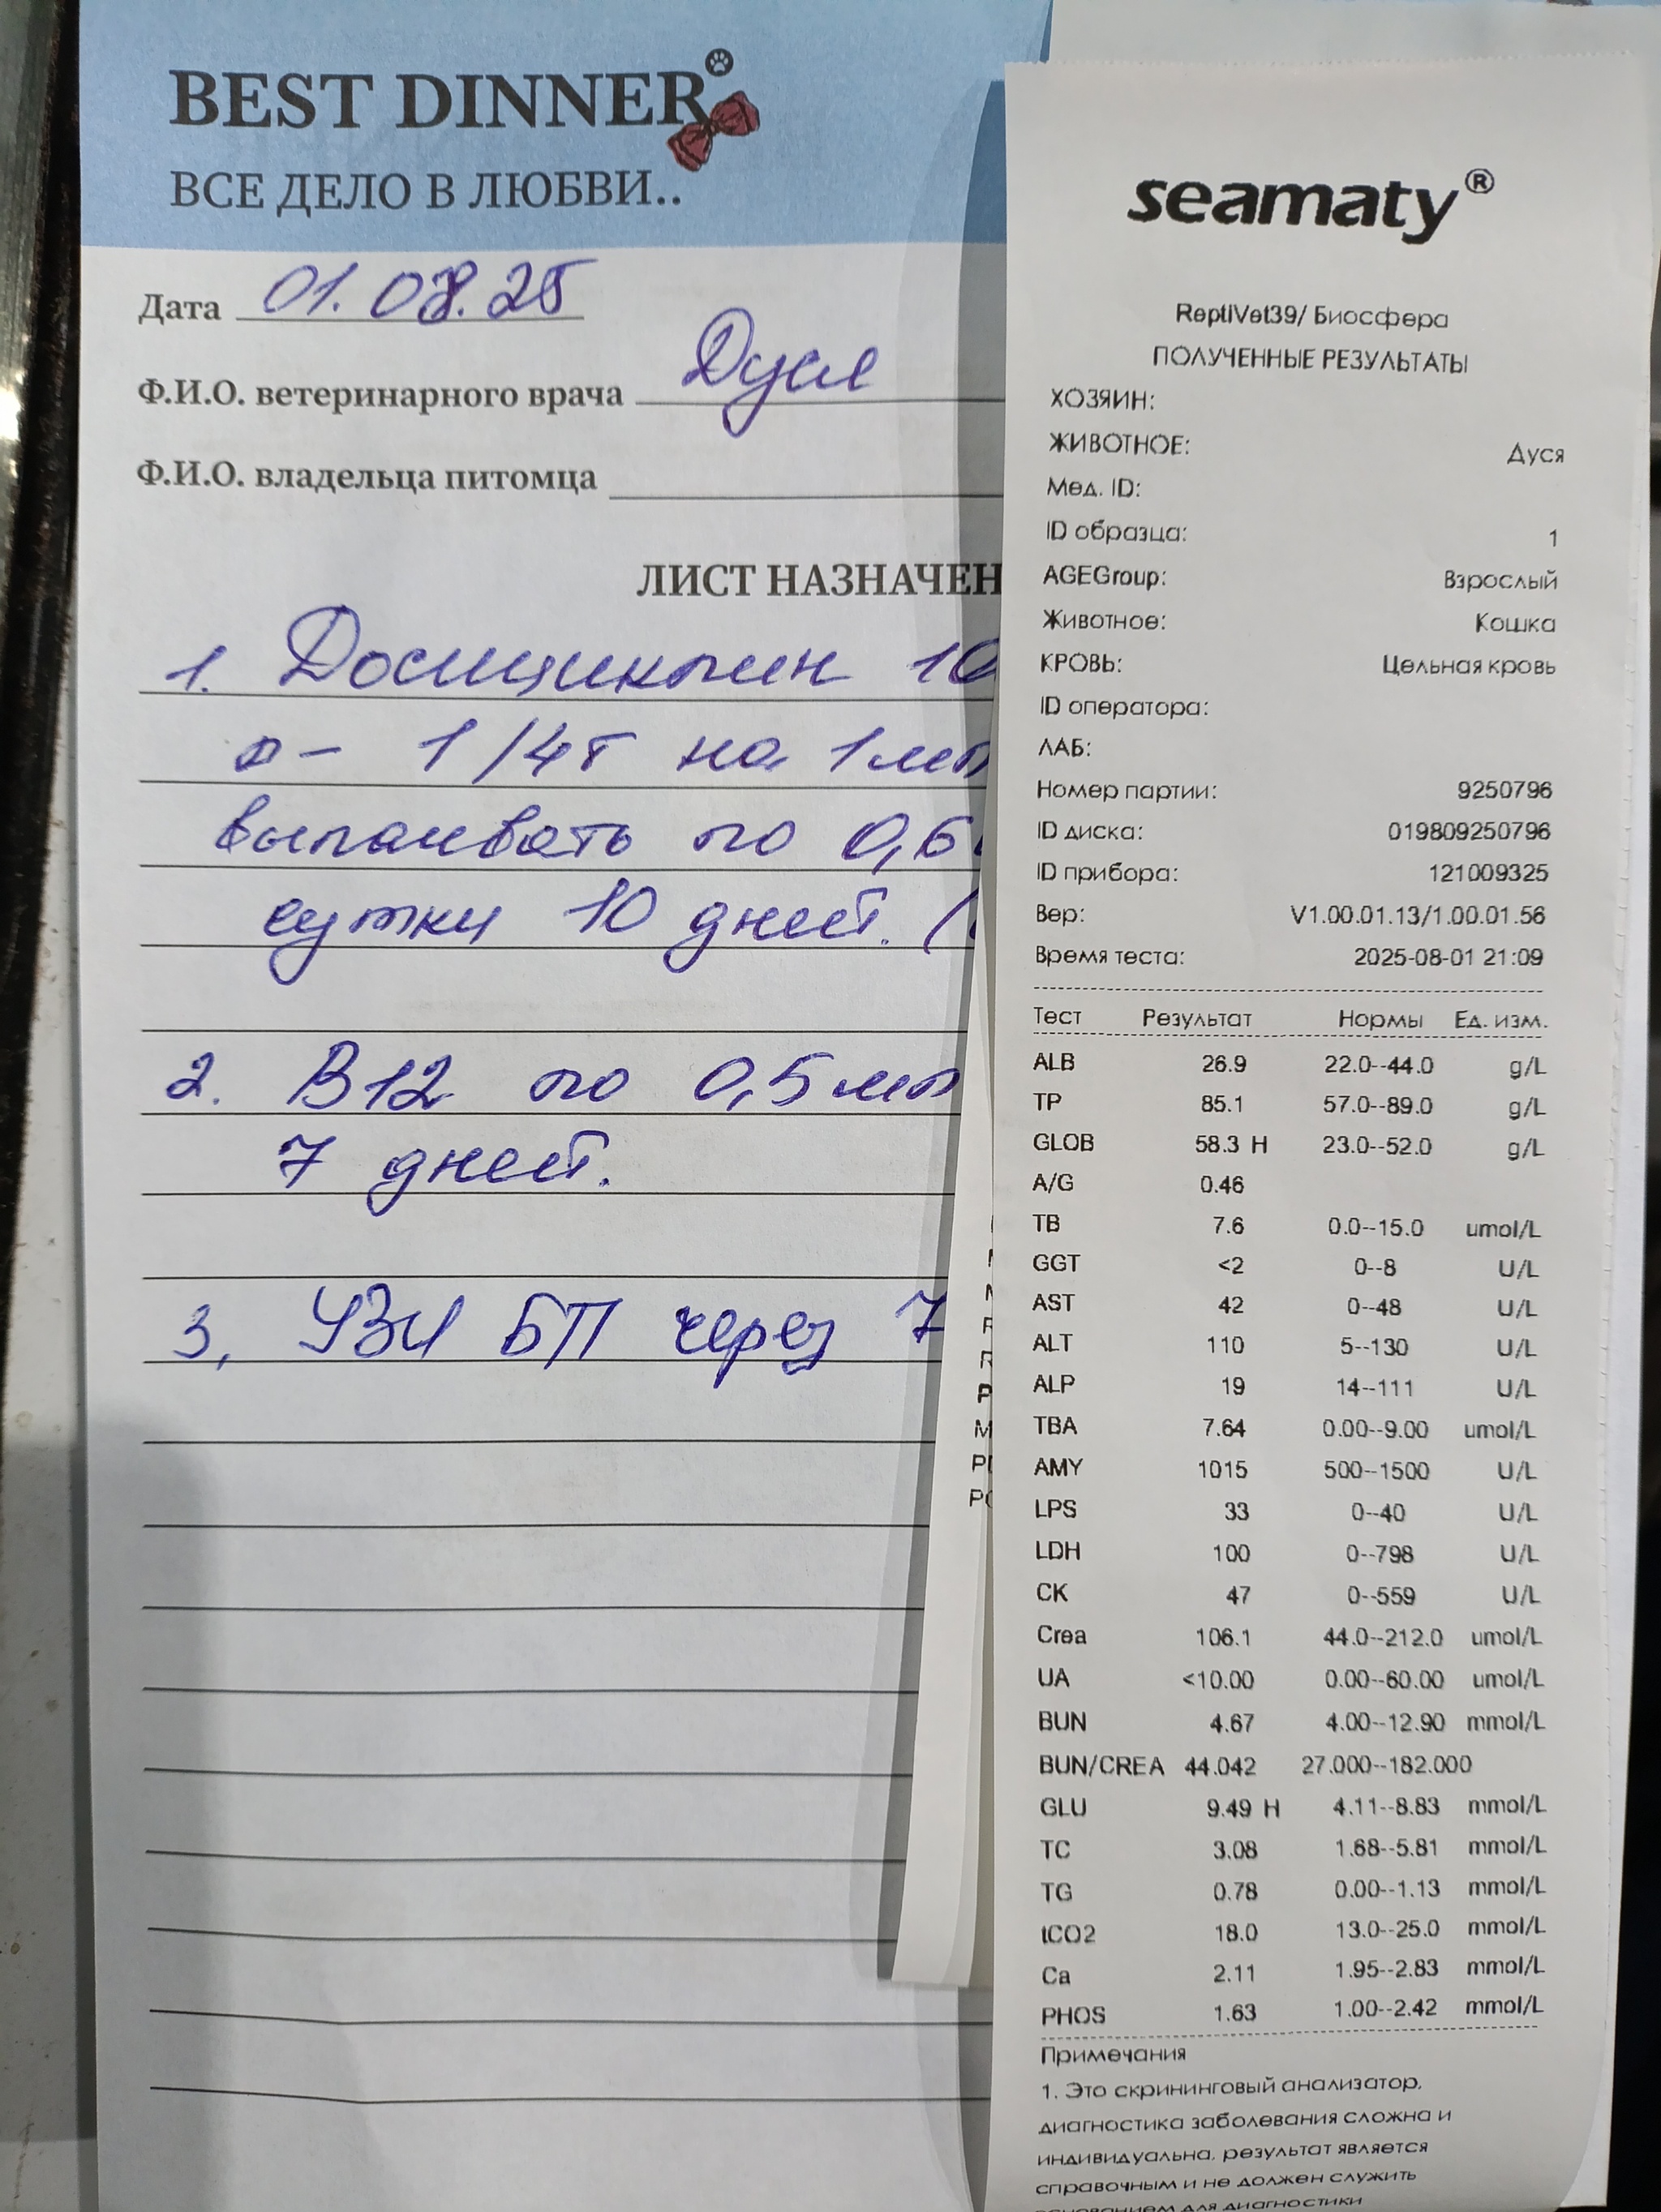 BEST DINNER
ВСЕ ДЕЛО В ЛЮБВИ..
Дата 01.08.25
Ф.И.О. ветеринарного врача Дуся
Ф.И.О. владельца питомца
ЛИСТ НАЗНАЧЕН
1. Доксициклин 10
- 1/4т на 1мл
выпаивать по 0,6
сутки 10 дней. (
2. В12 по 0,5мл
7 дней.
3. УЗИ БП через 7
seamaty®
ReptiVet39/ Биосфера
ПОЛУЧЕННЫЕ РЕЗУЛЬТАТЫ
ХОЗЯИН:
ЖИВОТНОЕ: Дуся
Мед. ID:
ID образца: 1
AGEGroup: Взрослый
Животное: Кошка
КРОВЬ: Цельная кровь
ID оператора:
ЛАБ:
Номер партии: 9250796
ID диска: 019809250796
ID прибора: 121009325
Вер: V1.00.01.13/1.00.01.56
Время теста: 2025-08-01 21:09
Тест Результат Нормы Ед. изм.
ALB 26.9 22.0--44.0 g/L
TP 85.1 57.0--89.0 g/L
GLOB 58.3 H 23.0--52.0 g/L
A/G 0.46
TB 7.6 0.0--15.0 umol/L
GGT <2 0--8 U/L
AST 42 0--48 U/L
ALT 110 5--130 U/L
ALP 19 14--111 U/L
TBA 7.64 0.00--9.00 umol/L
AMY 1015 500--1500 U/L
LPS 33 0--40 U/L
LDH 100 0--798 U/L
CK 47 0--559 U/L
Crea 106.1 44.0--212.0 umol/L
UA <10.00 0.00--60.00 umol/L
BUN 4.67 4.00--12.90 mmol/L
BUN/CREA 44.042 27.000--182.000
GLU 9.49 H 4.11--8.83 mmol/L
TC 3.08 1.68--5.81 mmol/L
TG 0.78 0.00--1.13 mmol/L
tCO2 18.0 13.0--25.0 mmol/L
Ca 2.11 1.95--2.83 mmol/L
PHOS 1.63 1.00--2.42 mmol/L
Примечания
1. Это скрининговый анализатор,
диагностика заболевания сложна и
индивидуальна, результат является
справочным и не должен служить
основанием для диагностики